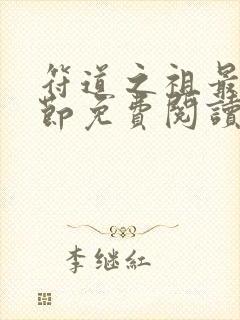 符道之祖最
節免費閱讀
李继紅